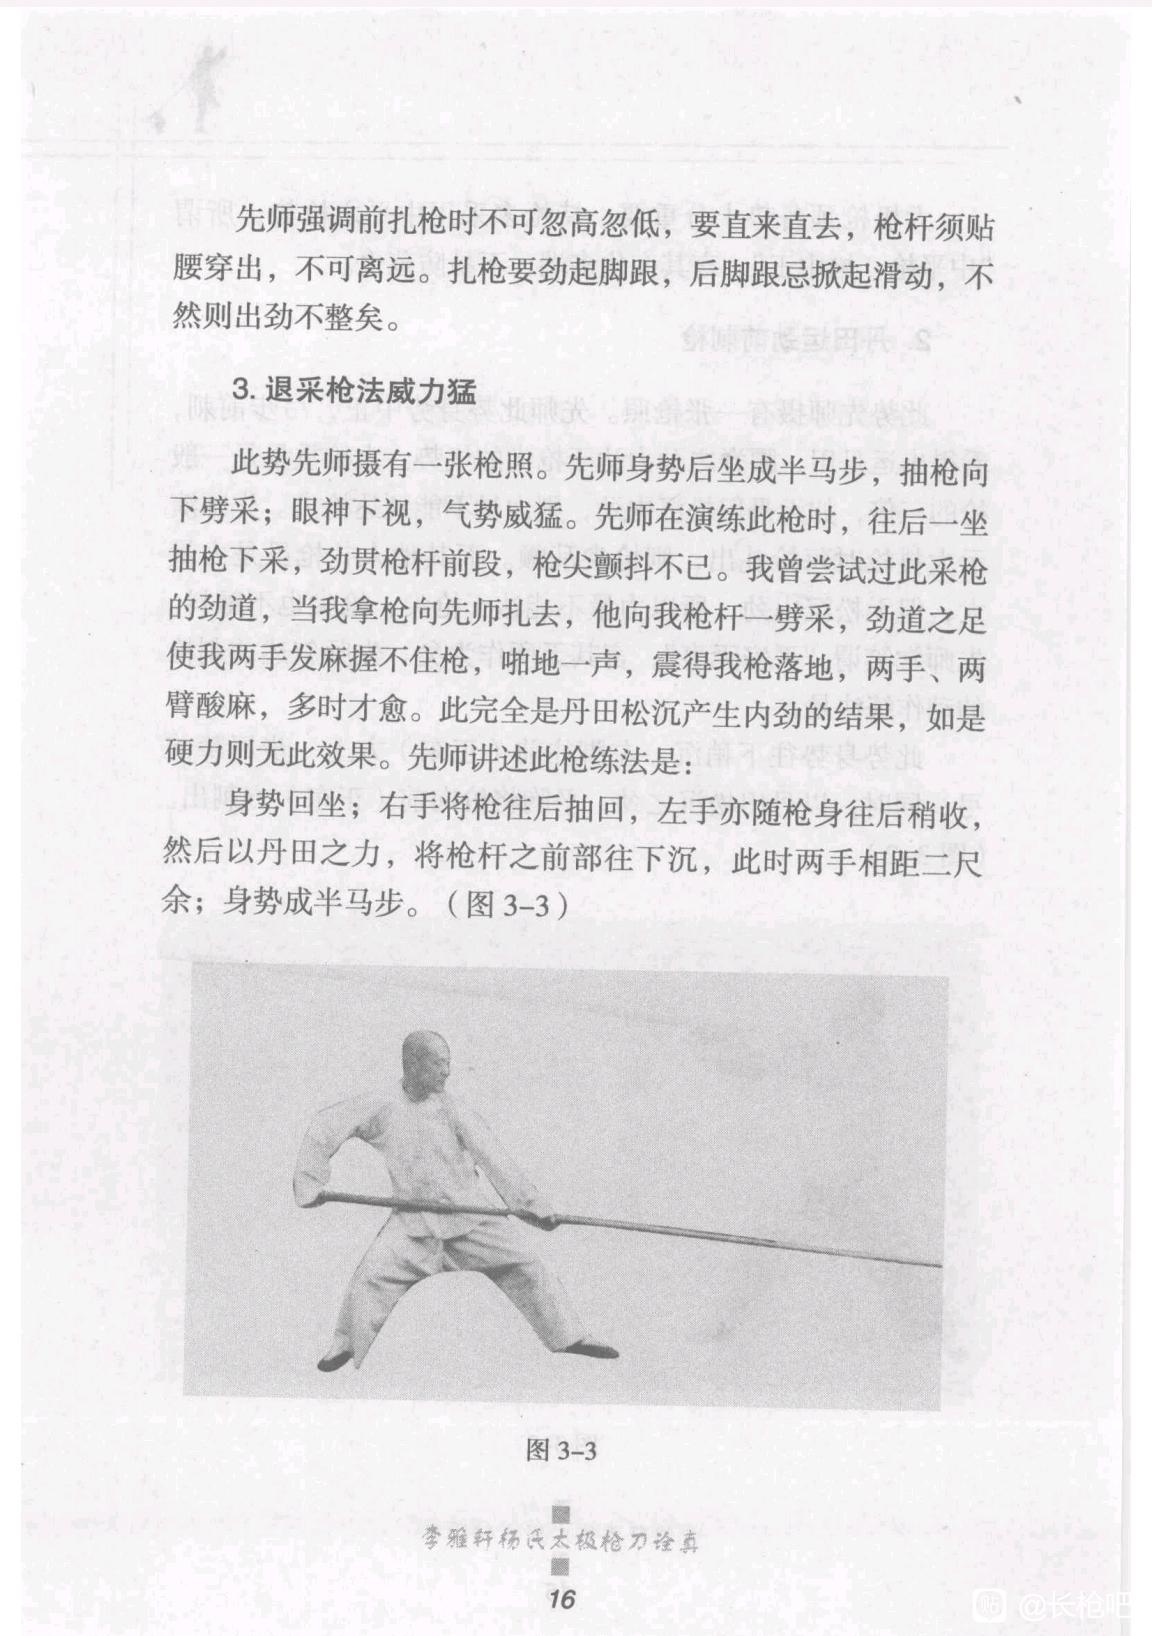 先师强调前扎枪时不可忽高忽低，要直来直去，枪杆须贴
腰穿出，不可离远。扎枪要劲起脚跟，后脚跟忌掀起滑动，不
然则出劲不整矣。
3. 退采枪法威力猛
此势先师摄有一张枪照。先师身势后坐成半马步，抽枪向
下劈采；眼神下视，气势威猛。先师在演练此枪时，往后一坐
抽枪下采，劲贯枪杆前段，枪尖颤抖不已。我曾尝试过此采枪
的劲道，当我拿枪向先师扎去，他向我枪杆一劈采，劲道之足
使我两手发麻握不住枪，啪地一声，震得我枪落地，两手、两
臂酸麻，多时才愈。此完全是丹田松沉产生内劲的结果，如是
硬力则无此效果。先师讲述此枪练法是：
身势回坐；右手将枪往后抽回，左手亦随枪身往后稍收，
然后以丹田之力，将枪杆之前部往下沉，此时两手相距二尺
余；身势成半马步。（图 3-3）
图 3-3
李雅轩杨氏太极枪刀诠真
16
贴 @长枪吧